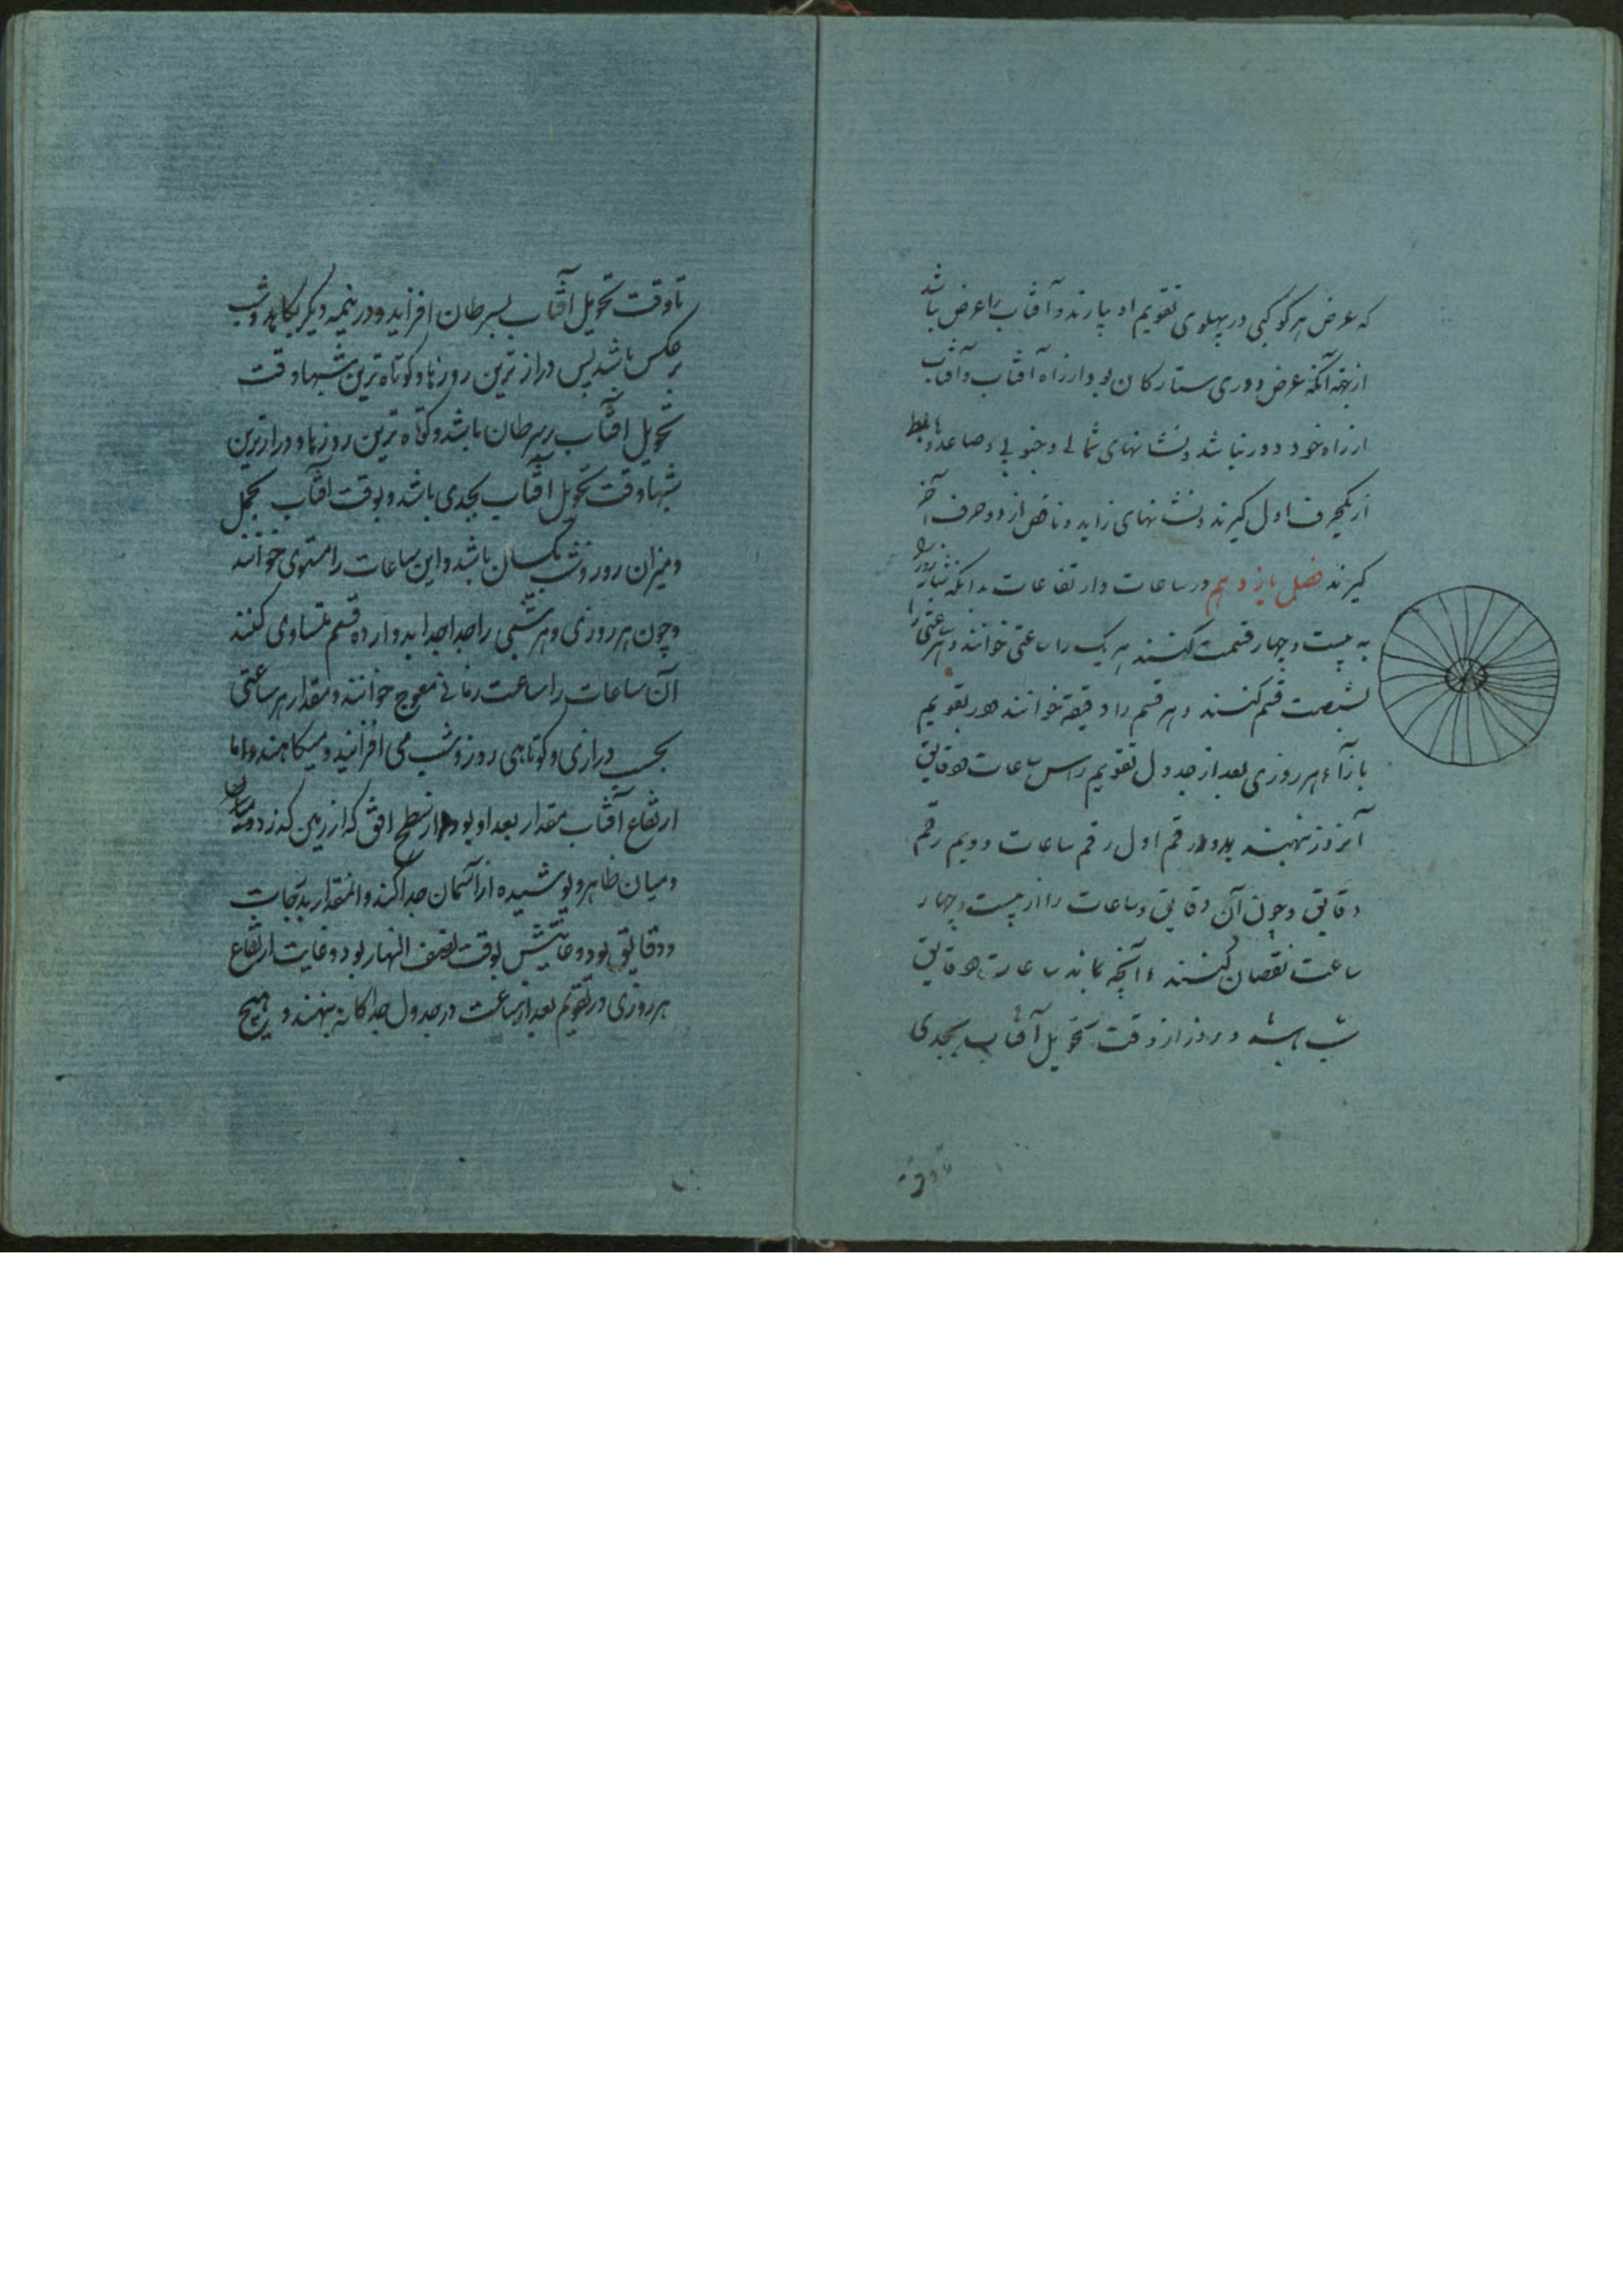 که عرض هر کوکبی در پهلوی تقویم او بیارند و آفتاب را عرض نباشد
از جهة آنکه عرض دوری ستارکان بود از راه آفتاب و آفتاب
از راه خود دور نباشد و نشانهای شمالی و جنوبی و صاعد و هابط
از یکحرف اول کیرند و نشانهای زاید و ناقص از دو حرف آخر
کیرند فصل یازدهم در ساعات و ارتفاعات بدانکه شبانروز را
به بیست و چهار قسمت کنند هر یک را ساعتی خوانند و هر ساعتی را
بشصت قسم کنند و هر قسم را دقیقه خوانند و در تقویم
بازآء هر روزی بعد از جدول تقویم راس ساعات و دقایق
آنروز نهند بدو رقم اول رقم ساعات دویم رقم
دقایق و چون آن دقایق و ساعات را از بیست و چهار
ساعت نقصان کنند آنچه بماند ساعات و دقایق
شب باشد و روز از وقت تحویل آفتاب بجدی
تا وقت
تا وقت تحویل آفتاب بسرطان افزاید و در نیمه دیکر بکاهد و شب
برعکس باشد پس درازترین روزها و کوتاه ترین شبها وقت
تحویل آفتاب بسرطان باشد و کوتاه ترین روزها و درازترین
شبها وقت تحویل آفتاب بجدی باشد و بوقت آفتاب بحمل
و میزان روز و شب یکسان باشد و این ساعات را مستوی خوانند
و چون هر روزی و هر شبی را جدا جدا بدوازده قسم متساوی کنند
آن ساعات را ساعت زمانی معوج خوانند و مقدار هر ساعتی
بحسب درازی و کوتاهی روز و شب می افزایند و میکاهند و اما
ارتفاع آفتاب مقدار بعد او بود از سطح افق که از زمین کذرد و میان
و میان ظاهر و پوشیده از آسمان جدا کند و آنمقدار بدرجات
و دقایق بود و غایتش بوقت نصف النهار بود و غایت ارتفاع
هر روزی در تقویم بعد از ساعت در جدول جداکانه بنهند و هیچ